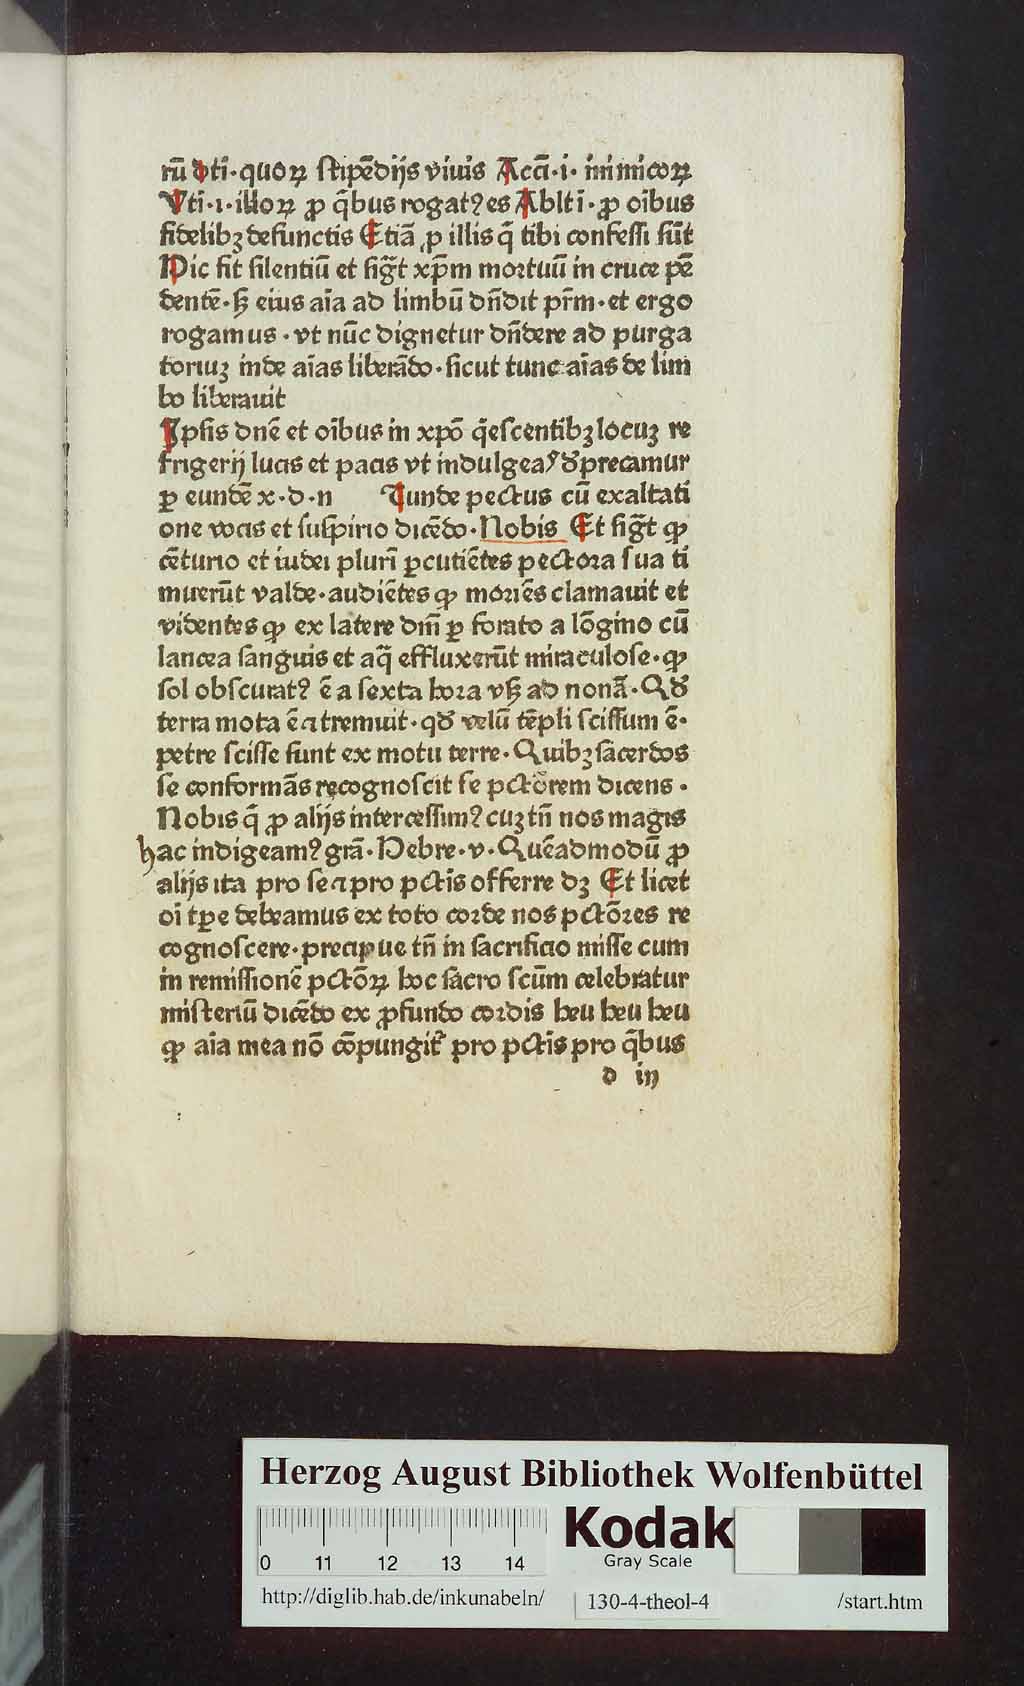 rū dti·quoꝝ stipēdijs viuis Accā·i·inimicoꝝ
Vti·i·illoꝝ ꝓ q̄bus rogatꝰ es Ablti·ꝓ oībus
fidelibꝫ defunctis Etiā ꝓ illis q̄ tibi confessi sūt
Hic fit silentiū et sigt̄ xp̄m mortuū in cruce pē
dentē·sꝫ eius aīa ad limbū dn̄dit pr̄m·et ergo
rogamus·vt nūc dignetur dn̄dere ad purga
toriuꝫ inde aīas liberādo·sicut tunc aīas de lim
bo liberauit
Ipsis dnē et oībus in xpō q̄escentibꝫ locuꝫ re
frigerij lucis et pacis vt indulgeas dp̄camur
ꝑ eundē x·d·n Tunde pectus cū exaltati
one vocis et suspirio dicēdo·Nobis Et sigt̄ ꝙ
cēturio et iudei plurī ꝑcutiētes pectora sua ti
muerūt valde·audiētes ꝙ moriēs clamauit et
videntes ꝙ ex latere dm̄ ꝑ forato a lōgino cū
lancea sanguis et aq̄ effluxerūt miraculose·ꝙ
sol obscuratꝰ ē a sexta hora vsꝫ ad nonā·Qd̄
terra mota ē ⁊ tremuit·qd̄ velū tēpli scissum ē·
petre scisse sunt ex motu terre·Quibꝫ sacerdos
se conformās recognoscit se pctōrem dicens·
Nobis q̄ ꝓ alijs intercessimꝰ cuꝫ tn̄ nos magis
hac indigeamꝰ grā·Hebre·v·Quēadmodū ꝓ
alijs ita pro se ⁊ pro pctīs offerre dꝫ Et licet
oī tꝑe debeamus ex toto corde nos pctōres re
cognoscere·precipue tn̄ in sacrificio misse cum
in remissionē pctōꝝ hoc sacro scūm celebratur
misteriū dicēdo ex ꝓfundo cordis heu heu heu
ꝙ aīa mea nō cōpungit͛ pro pctīs pro q̄bus
d iij
Herzog August Bibliothek Wolfenbüttel
0 11 12 13 14
Kodak
Gray Scale
http://diglib.hab.de/inkunabeln/ 130-4-theol-4 /start.htm